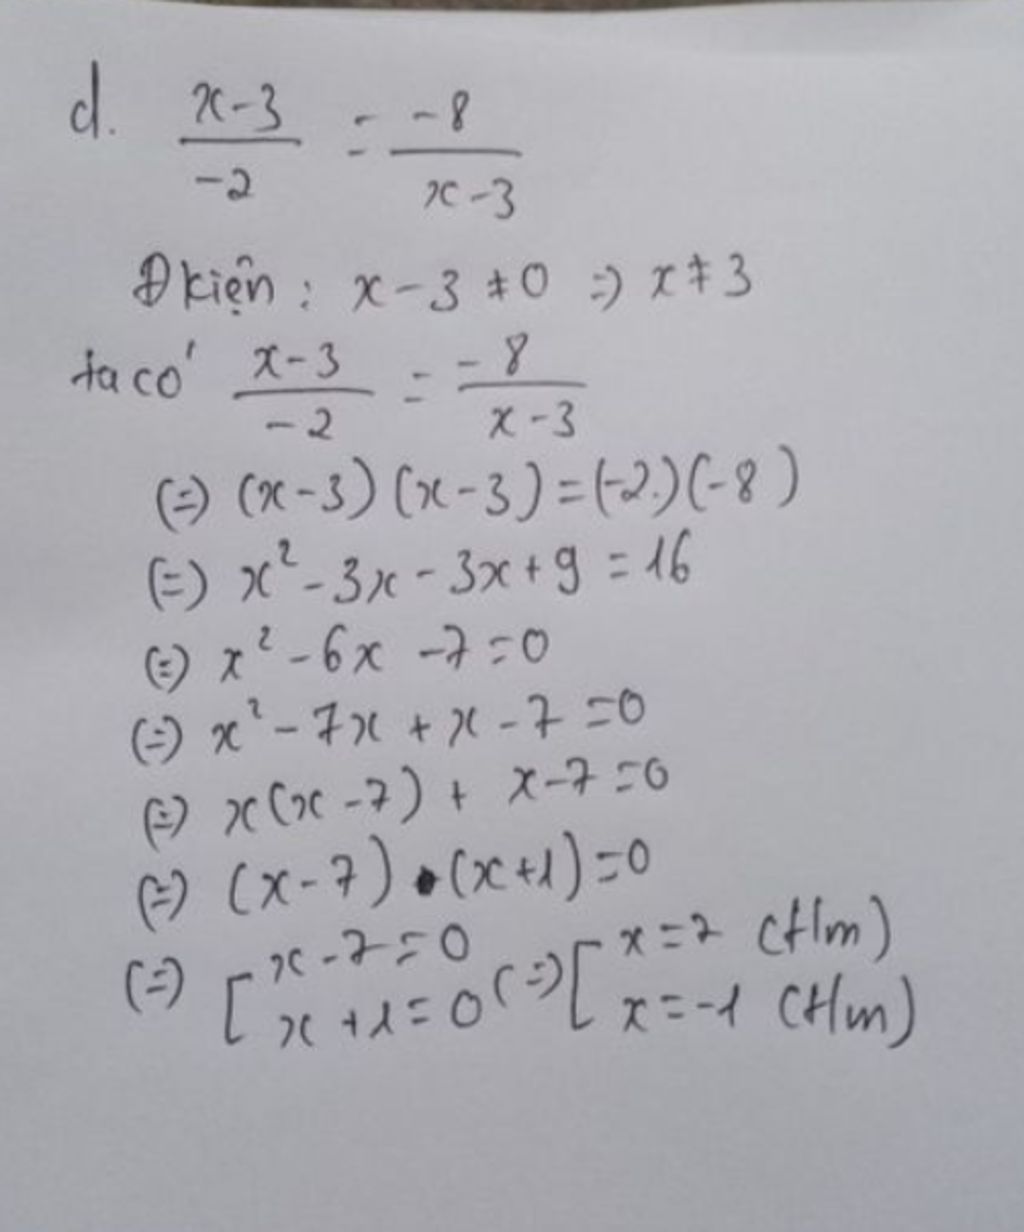 d. (x-3)/(-2) = (-8)/(x-3)
Đkiện : x-3 ≠ 0 => x ≠ 3
ta có (x-3)/(-2) = (-8)/(x-3)
(=) (x-3)(x-3) = (-2.)(-8)
(=) x² - 3x - 3x + 9 = 16
(=) x² - 6x - 7 = 0
(=) x² - 7x + x - 7 = 0
(=) x(x-7) + x-7 = 0
(=) (x-7) • (x+1) = 0
(=) [ x-7 = 0 (=) [ x = 7 (t/m)
x+1 = 0 x = -1 (t/m)